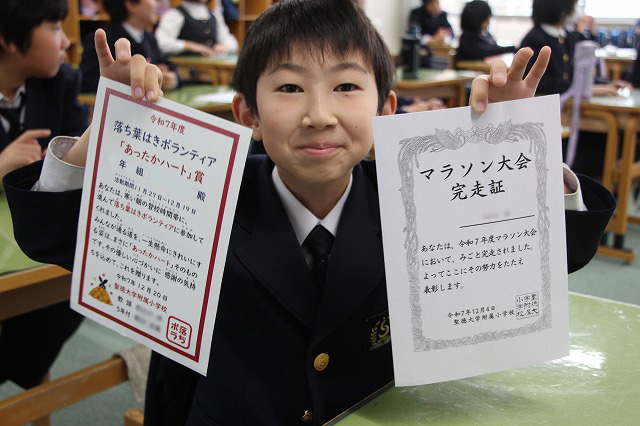 令和7年度
落ち葉はきボランティア
「あったかハート」賞
年 組 殿
活動期間11月27日~12月19日
あなたは、寒い朝の登校時間帯に、
進んで落ち葉はきボランティアに参加して
くれました。
みんなが通る道を一生懸命にきれいにす
る姿は、まさに「あったかハート」そのもの
です。その優しい心づかいに感謝の気持
ちを込めて、これを贈ります。
令和7年12月20日
聖徳大学附属小学校
教頭
5年付
落ち
ボラ
令和7年度
マラソン大会
完走証
あなたは、令和7年度マラソン大会
において、みごと完走されました。
よってここにその努力をたたえ
表彰します。
令和7年12月4日
聖徳大学附属小学校
聖徳大
学附属
小学校
S